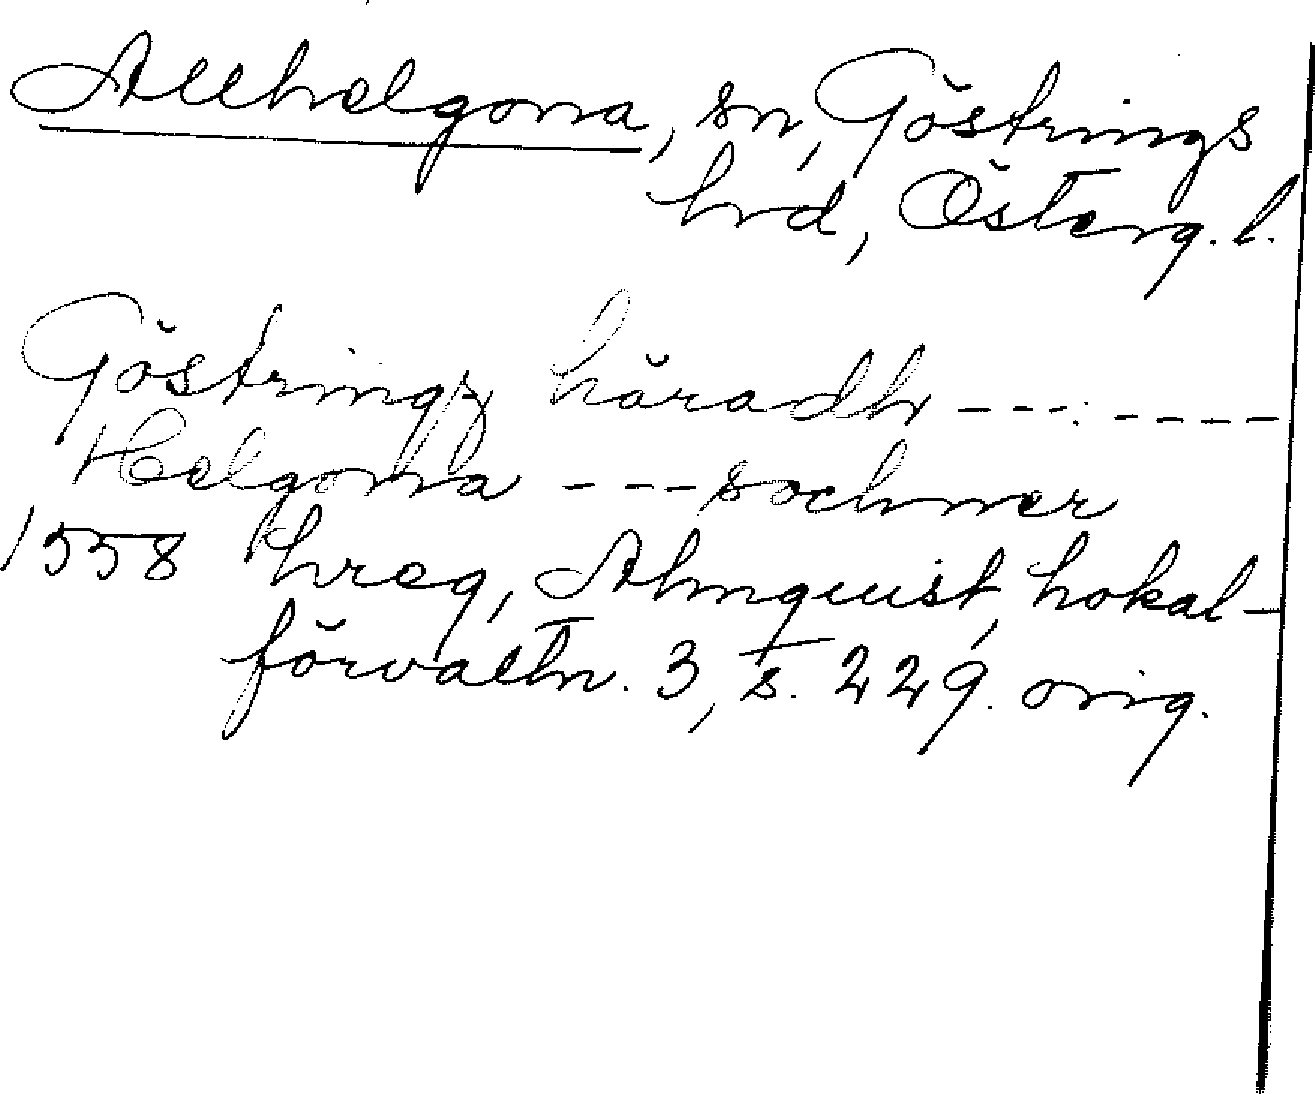 Allhelgona, sn, Göstrings
hrd, Österg. l.
Göstringz häradh --- ----
Helgona --- sochner
1558 hreg, Almquist, Lokal-
förvaltn. 3, s. 229. orig.